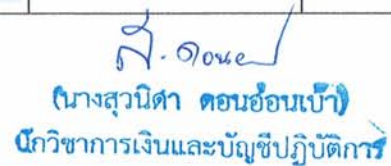 (นางสุวนิดา ดอนอ่อนเบ้า)
นักวิชาการเงินและบัญชีปฏิบัติการ